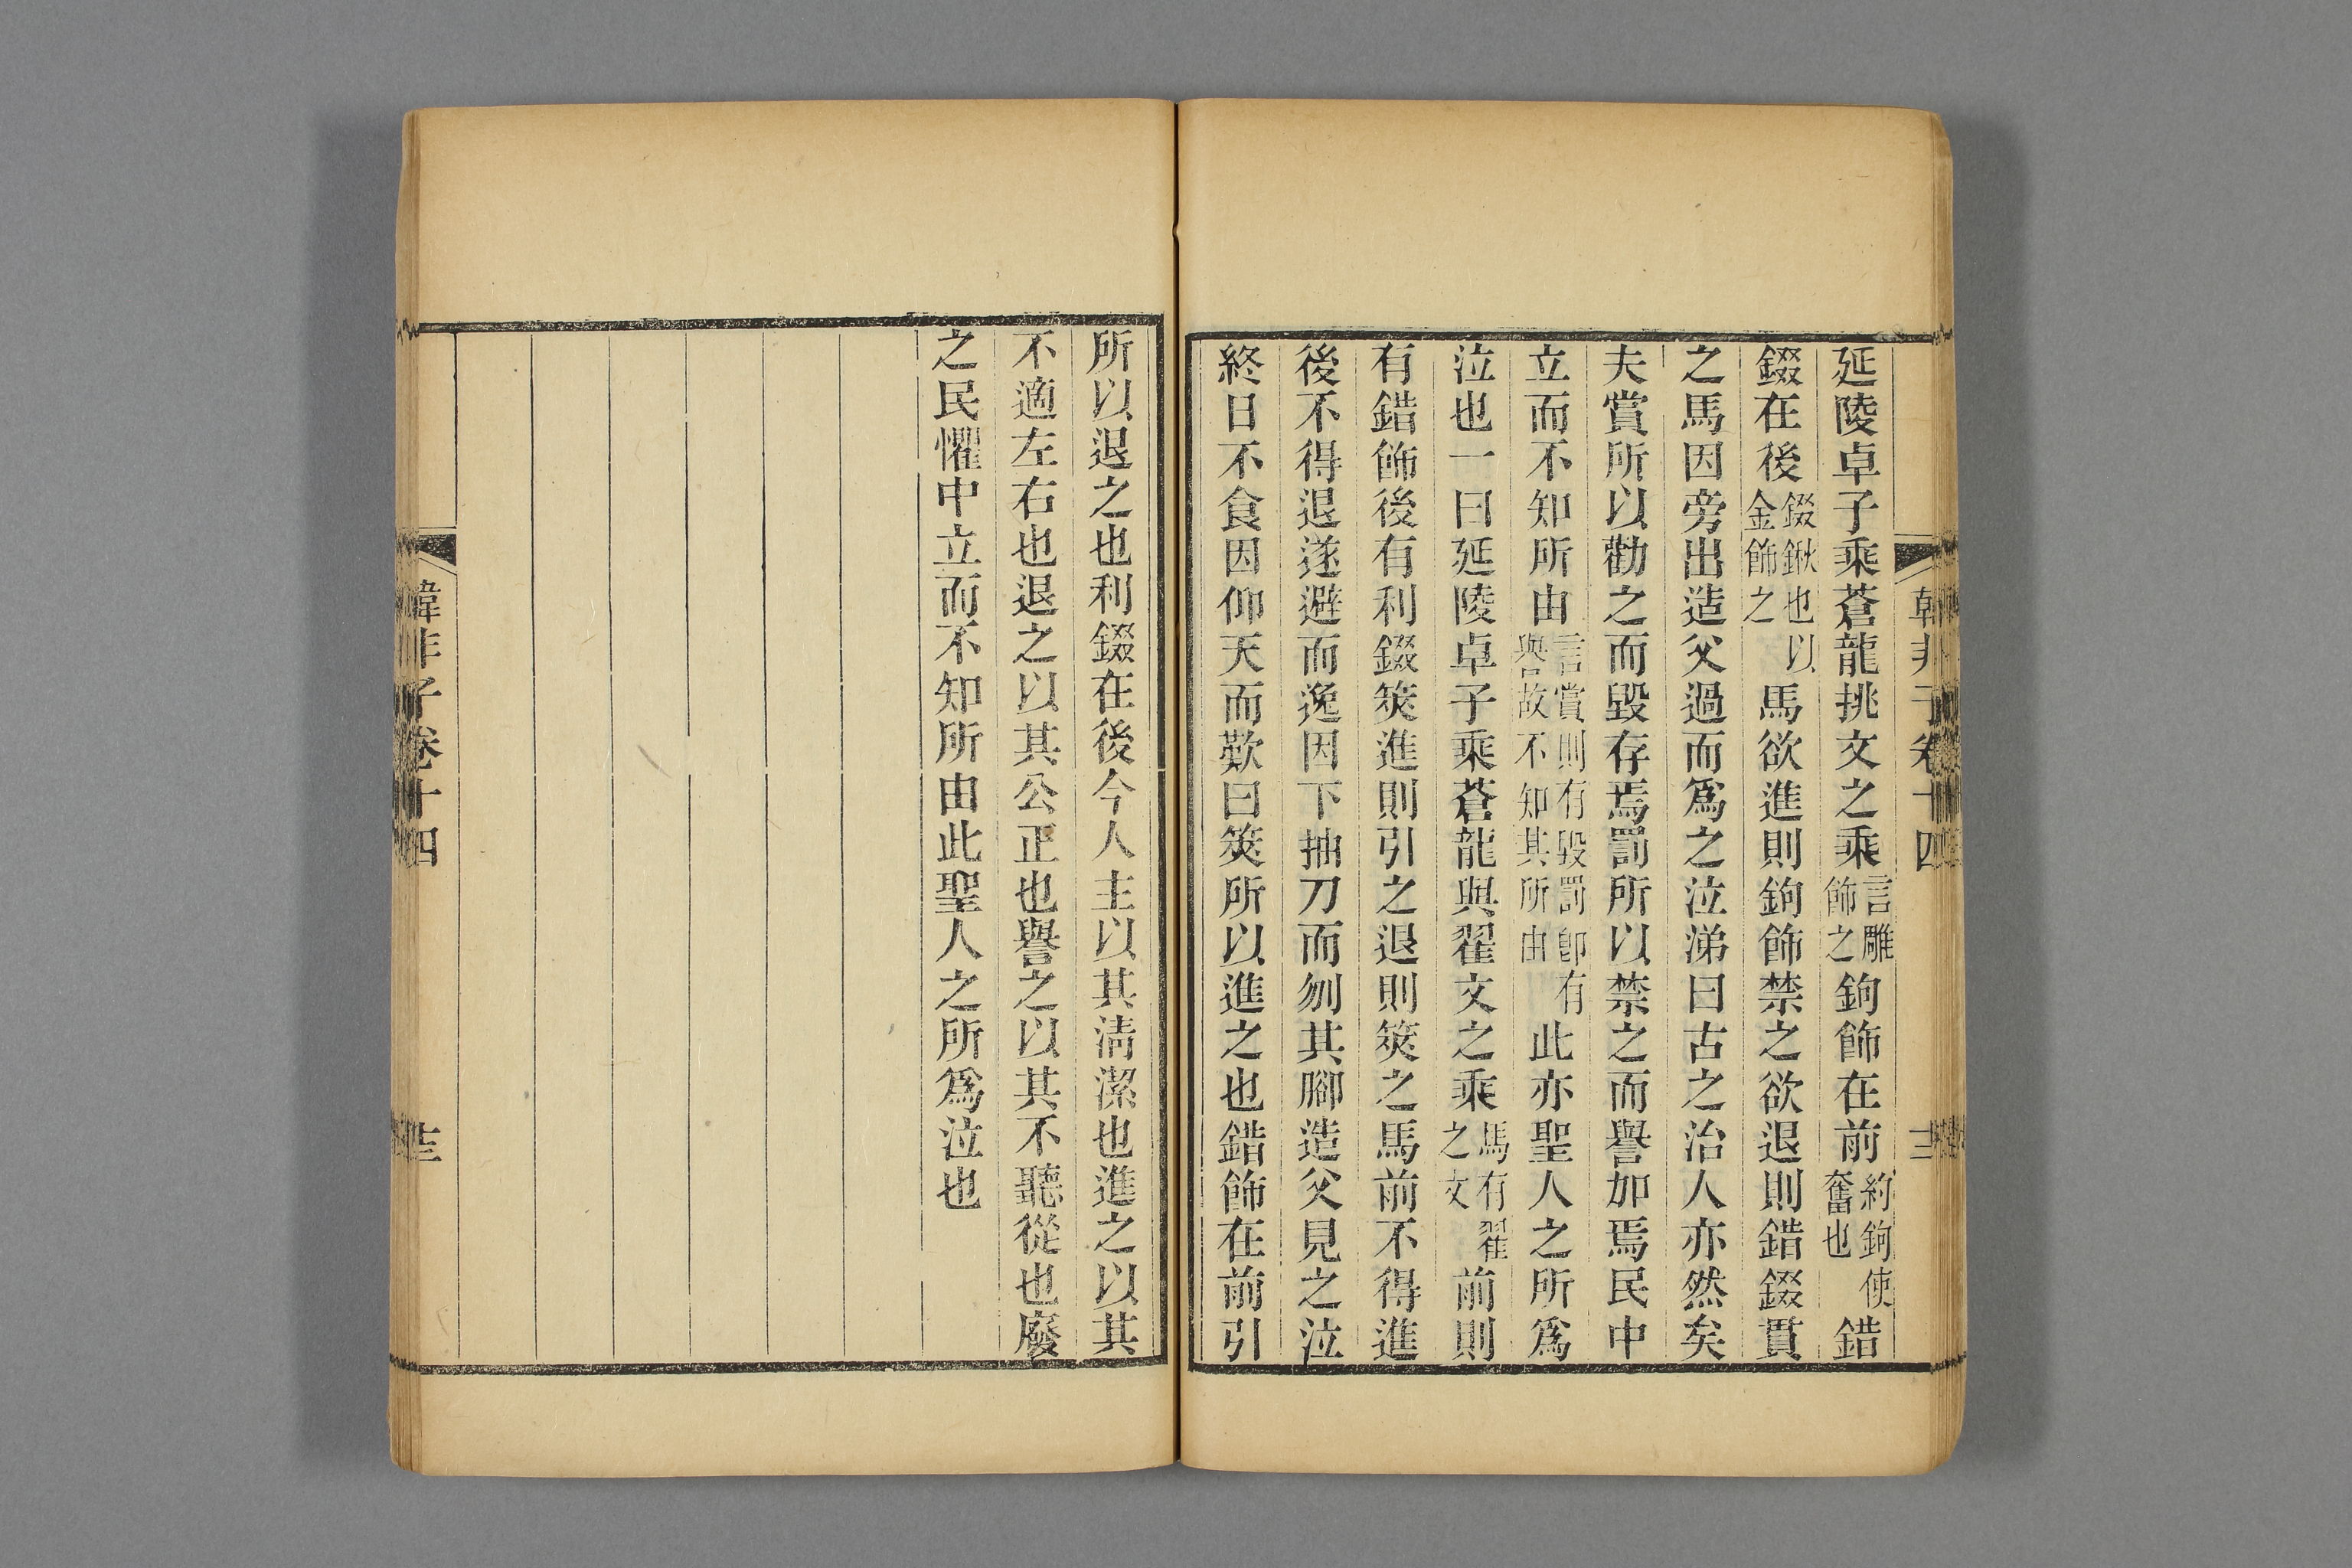 韓非子卷十四 十二
延陵卓子乘蒼龍挑文之乘言雕飾之鉤飾在前約鉤使奮也錯
錣在後錣鍬也以金飾之馬欲進則鉤飾禁之欲退則錯錣貫
之馬因旁出造父過而爲之泣涕曰古之治人亦然矣
夫賞所以勸之而毀存焉罰所以禁之而譽加焉民中
立而不知所由言賞則有毀罰卽有與譽故不知其所由此亦聖人之所爲
泣也一曰延陵卓子乘蒼龍與翟文之乘馬有翟之文前則
有錯飾後有利錣筴進則引之退則筴之馬前不得進
後不得退遂避而逸因下抽刀而刎其腳造父見之泣
終日不食因仰天而歎曰筴所以進之也錯飾在前引
所以退之也利錣在後今人主以其淸潔也進之以其
不適左右也退之以其公正也譽之以其不聽從也廢
之民懼中立而不知所由此聖人之所爲泣也
韓非子卷十四